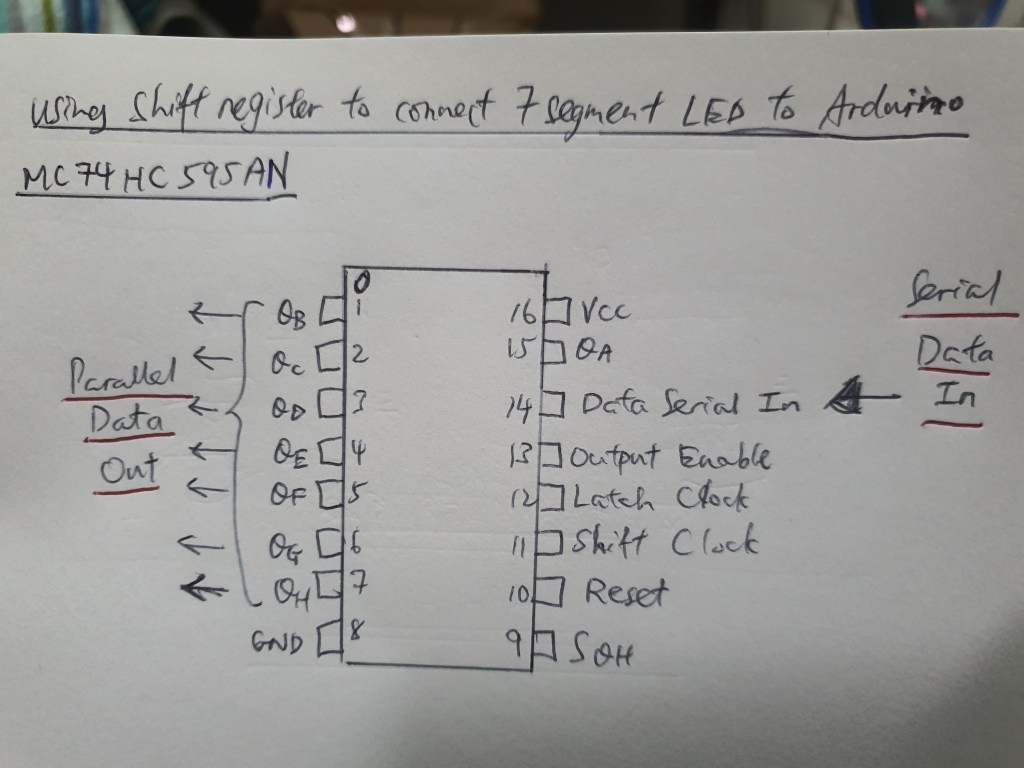 Using Shift register to connect 7 segment LED to Arduino
MC74HC595AN
0
QB 1
QC 2
QD 3
QE 4
QF 5
QG 6
QH 7
GND 8
Parallel
Data
Out
16 VCC
15 QA
14 Data Serial In
13 Output Enable
12 Latch Clock
11 Shift Clock
10 Reset
9 SQH
Serial
Data
In